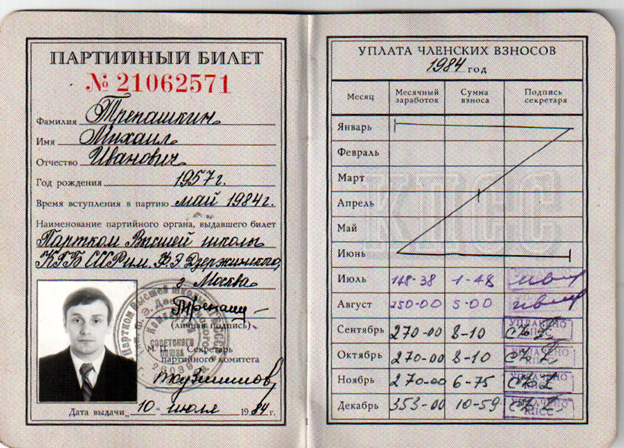 ПАРТИЙНЫЙ БИЛЕТ
№ 21062571
Фамилия Трепашкин
Имя Михаил
Отчество Иванович
Год рождения 1957г.
Время вступления в партию май 1984г.
Наименование партийного органа, выдавшего билет
Партком Высшей школы
КГБ СССР им. Ф.Э. Дзержинского,
г. Москва
(личная подпись)
М.П. Секретарь
партийного комитета
Дата выдачи 10 июля 1984г.
УПЛАТА ЧЛЕНСКИХ ВЗНОСОВ
1984 год
Месяц Месячный заработок Сумма взноса Подпись секретаря
Январь
Февраль
Март
Апрель
Май
Июнь
КПСС
Июль 148-38 1-48
Август 250-00 5-00
Сентябрь 270-00 8-10 УПЛАЧЕНО КПСС
Октябрь 270-00 8-10 УПЛАЧЕНО КПСС
Ноябрь 270-00 6-75 УПЛАЧЕНО КПСС
Декабрь 353-00 10-59 УПЛАЧЕНО КПСС